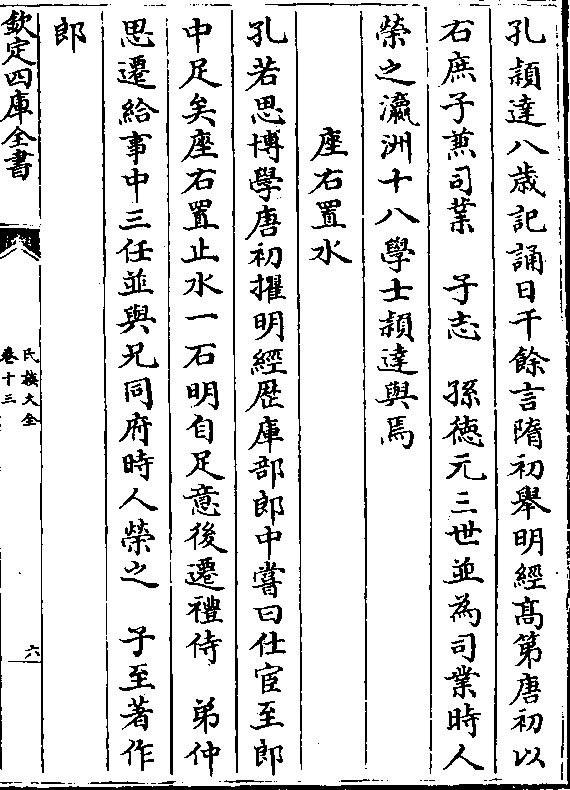 孔頴達八歲記誦日千餘言隋初舉明經髙第唐初以
右庶子兼司業　子志　孫徳元三世並為司業時人
榮之瀛洲十八學士頴達與焉
座右置水
孔若思博學唐初擢明經歴庫部郎中嘗曰仕宦至郎
中足矣座右置止水一石明自足意後遷禮侍　弟仲
思遷給事中三任並與兄同府時人榮之　子至著作
郎
欽定四庫全書
氏族大全
卷十三
六